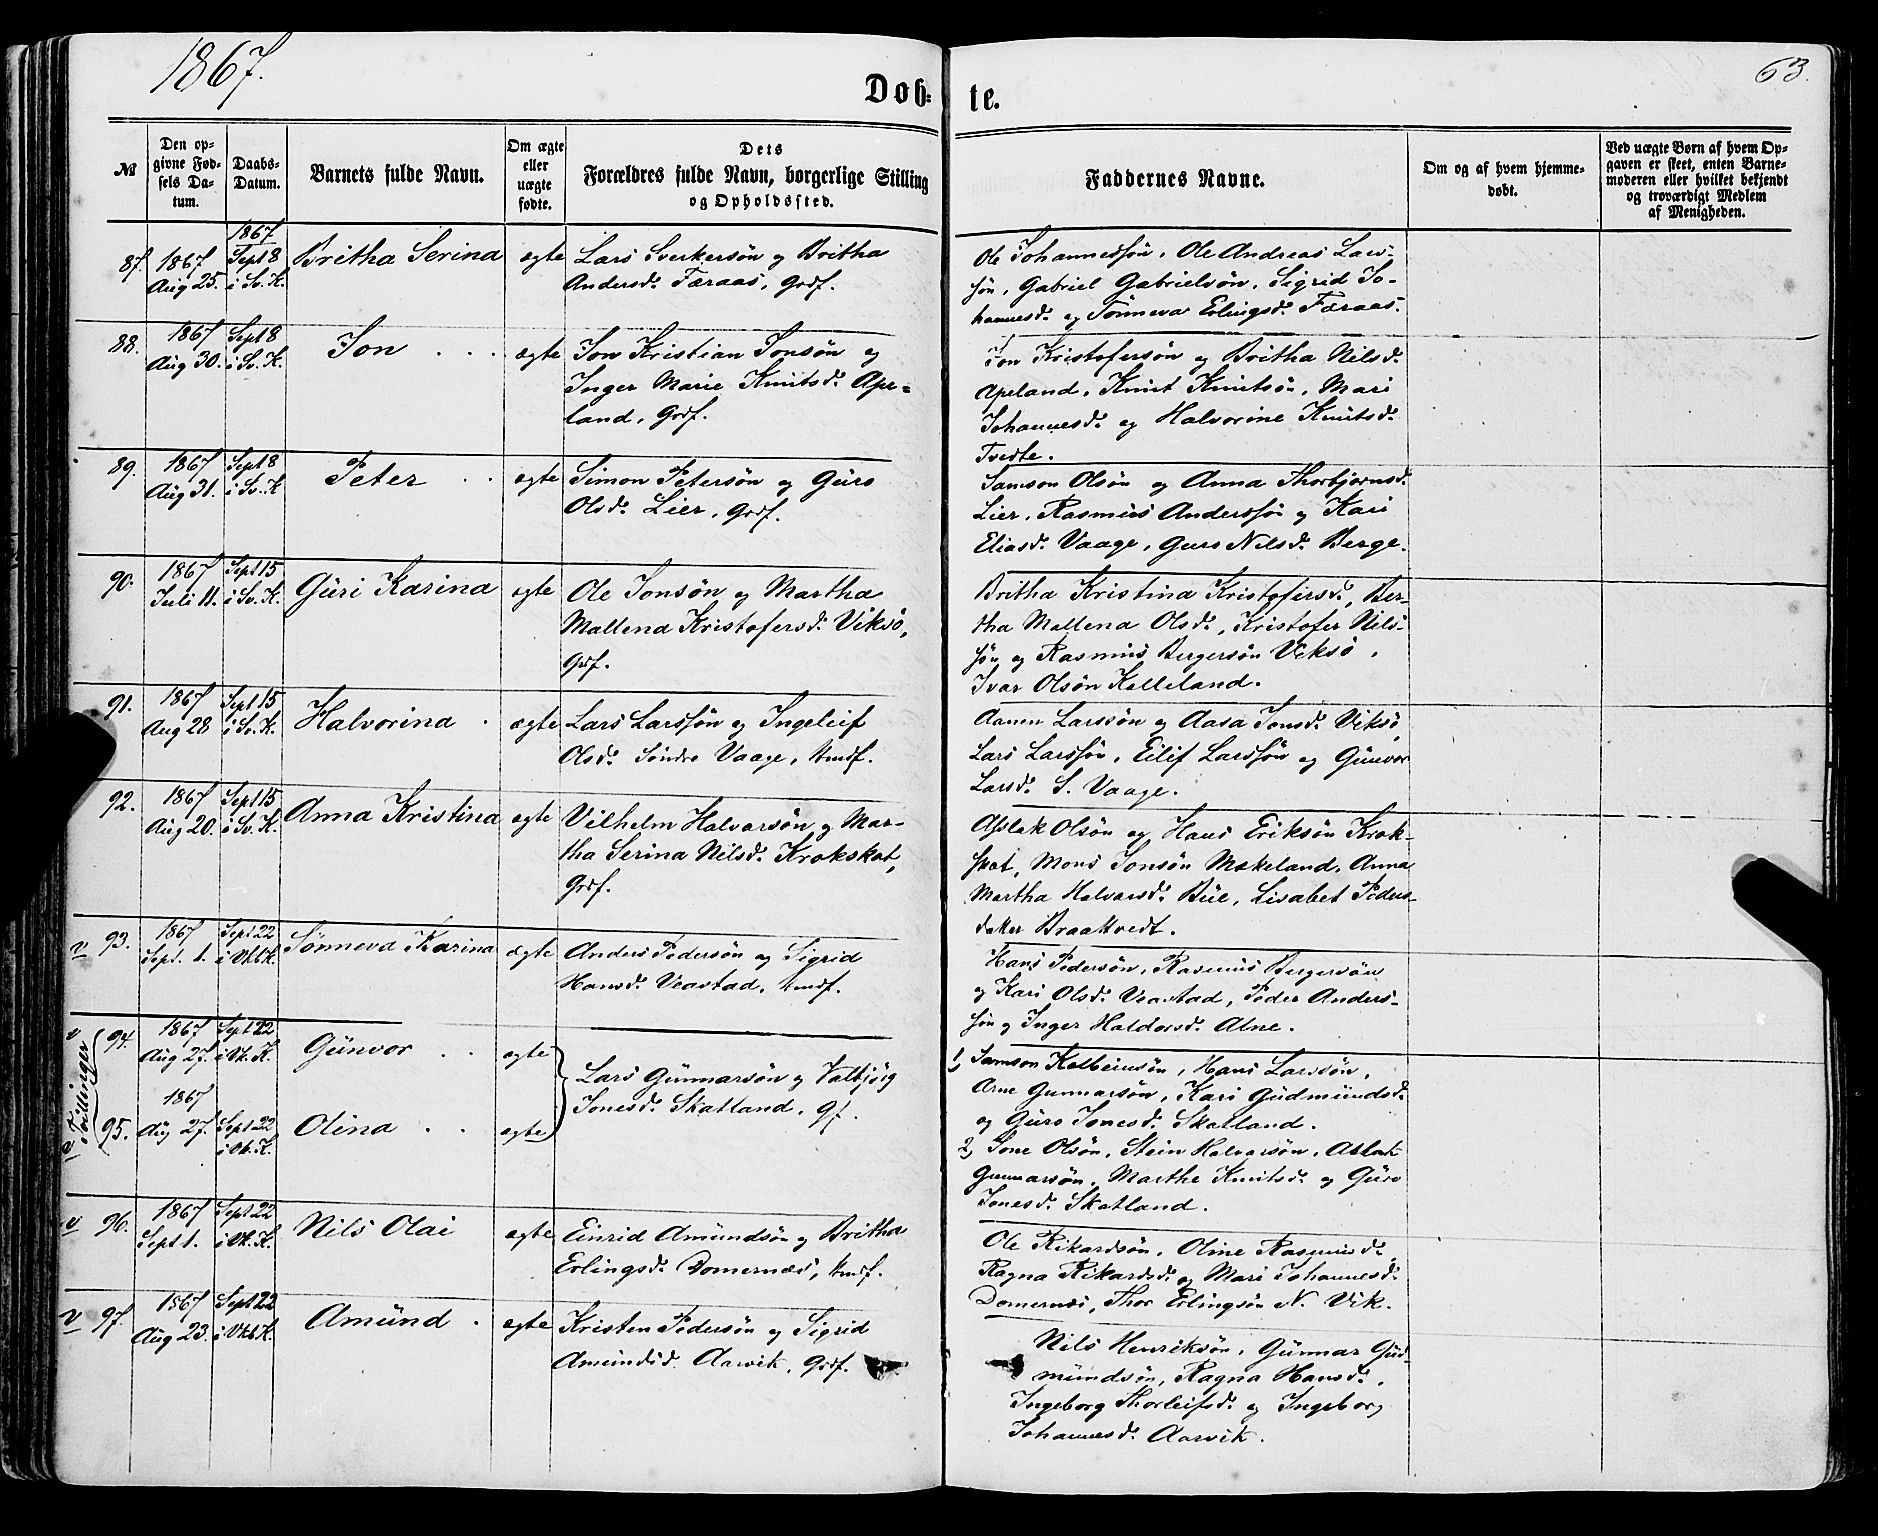 1867.
63.
Døb-
te.
№
Den op-
givne Fød-
sels Da-
tum.
Daabs-
Datum.
Barnets fulde Navn.
Om ægte
eller
uægte
fødte.
Dets
Forældres fulde Navn, borgerlige Stilling
og Opholdssted.
Faddernes Navne.
Om og af hvem hjemme-
døbt.
Ved uægte Børn af hvem Op-
gaven er skeet, enten Barne-
moderen eller hvilket bekjendt
og troværdigt Medlem
af Menigheden.
87.
1867
Aug 25.
1867
Sept 8
i Sv. K.
Britha Serina
ægte
Lars Sverkersön og Britha
Andersd. Færaas, Grdf.
Ole Johannessön, Ole Andreas Lars-
sön, Gabriel Gabrielsön, Sigrid Jo-
hannesd. og Tönneva Erlingsd. Færaas.
88.
1867
Aug 30.
Sept 8
i Sv. K.
Jon
ægte
Jon Kristian Jonsön og
Inger Marie Knutsd. Ape-
land, Grdf.
Jon Kristofersön og Britha Nilsd.
Apeland, Knut Knutsön, Mari
Johannesd. og Halvorine Knutsd.
Tvedte.
89.
1867
Aug 31.
Sept 8
i Sv. K
Peter
ægte
Simon Petersön og Guro
Olsd. Lier, Grdf.
Samson Olsön og Anna Thorbjornsd.
Lier, Rasmus Anderssön og Kari
Eliasd. Vaage, Guro Nilsd. Berge.
90.
1867
Juli 11.
Sept 15
i Sv. K.
Guri Karina
ægte
Ole Jonsön og Martha
Mallena Kristofersd. Viksö,
Grdf.
Britha Kristina Kristofersd., Ber-
tha Mallena Olsd., Kristofer Nils-
sön og Rasmus Bergersön Viksö,
Ivar Olsön Kalleland.
91.
1867
Aug 28
Sept 15
i Sv. K.
Halvorina
ægte
Lars Larssön og Ingeleif
Olsd. Söndre Vaage, Hmdf.
Aanen Larssön og Aasa Jonsd. Viksö,
Lars Larssön, Eilif Larssön og Gunvor
Larsd. S. Vaage.
92.
1867
Aug 20.
Sept 15
i Sv. K.
Anna Kristina
ægte
Vilhelm Halvorsön og Mar-
tha Serina Nilsd. Krokskot,
Grdf.
Aslak Olsön og Hans Eriksön Krok-
skot, Mons Jonsön Mækeland, Anna
Martha Halvorsd. Büe, Lisabet Peders-
datter Braatvedt.
v 93.
1867
Sept. 1.
Sept 22
i Vkb K.
Sönneva Karina
ægte
Anders Pedersön og Sigrid
Hansd. Veastad, Hmdf.
Hans Pedersön, Rasmus Bergersön
og Kari Olsd. Veastad, Peder Anders-
sön og Inger Haldorsd. Alne.
Tvillinger
v 94.
1867
Aug 27.
Sept 22
i Vk. K.
Gunvor
ægte
Lars Gunnarsön og Valbjörg
Jonesd. Skatland, Gf.
1) Samson Kolbeinsön, Hans Larssön,
Arne Gunnarsön, Kari Gudmundsd.
og Guro Jonesd. Skatland.
v 95.
1867
Aug 27.
Sept 22
i Vk. K.
Olina
ægte
2) Jone Olsön, Stein Halvorsön, Aslak
Gunnarsön, Marthe Knutsd. og Guro
Jonesd. Skatland.
v 96.
1867
Sept 1.
Sept 22
i Vk. K.
Nils Olai
ægte
Einrid Amundsön og Britha
Erlingsd. Domernæs, Hmdf.
Ole Rikardsön, Oline Rasmusd.
Ragna Rikardsd. og Mari Johannesd.
Domernæs, Thor Erlingsön N. Vik.
v 97.
1867
Aug 23.
Sept 22
i Vkb K.
Amund
ægte
Kristen Pedersön og Sigrid
Amundsd. Aarvik, Grdf.
Nils Henriksön, Gunnar Gud-
mundsön, Ragna Hansd.,
Ingeborg Thorleifsd. og Ingeborg
Johannesd. Aarvik.